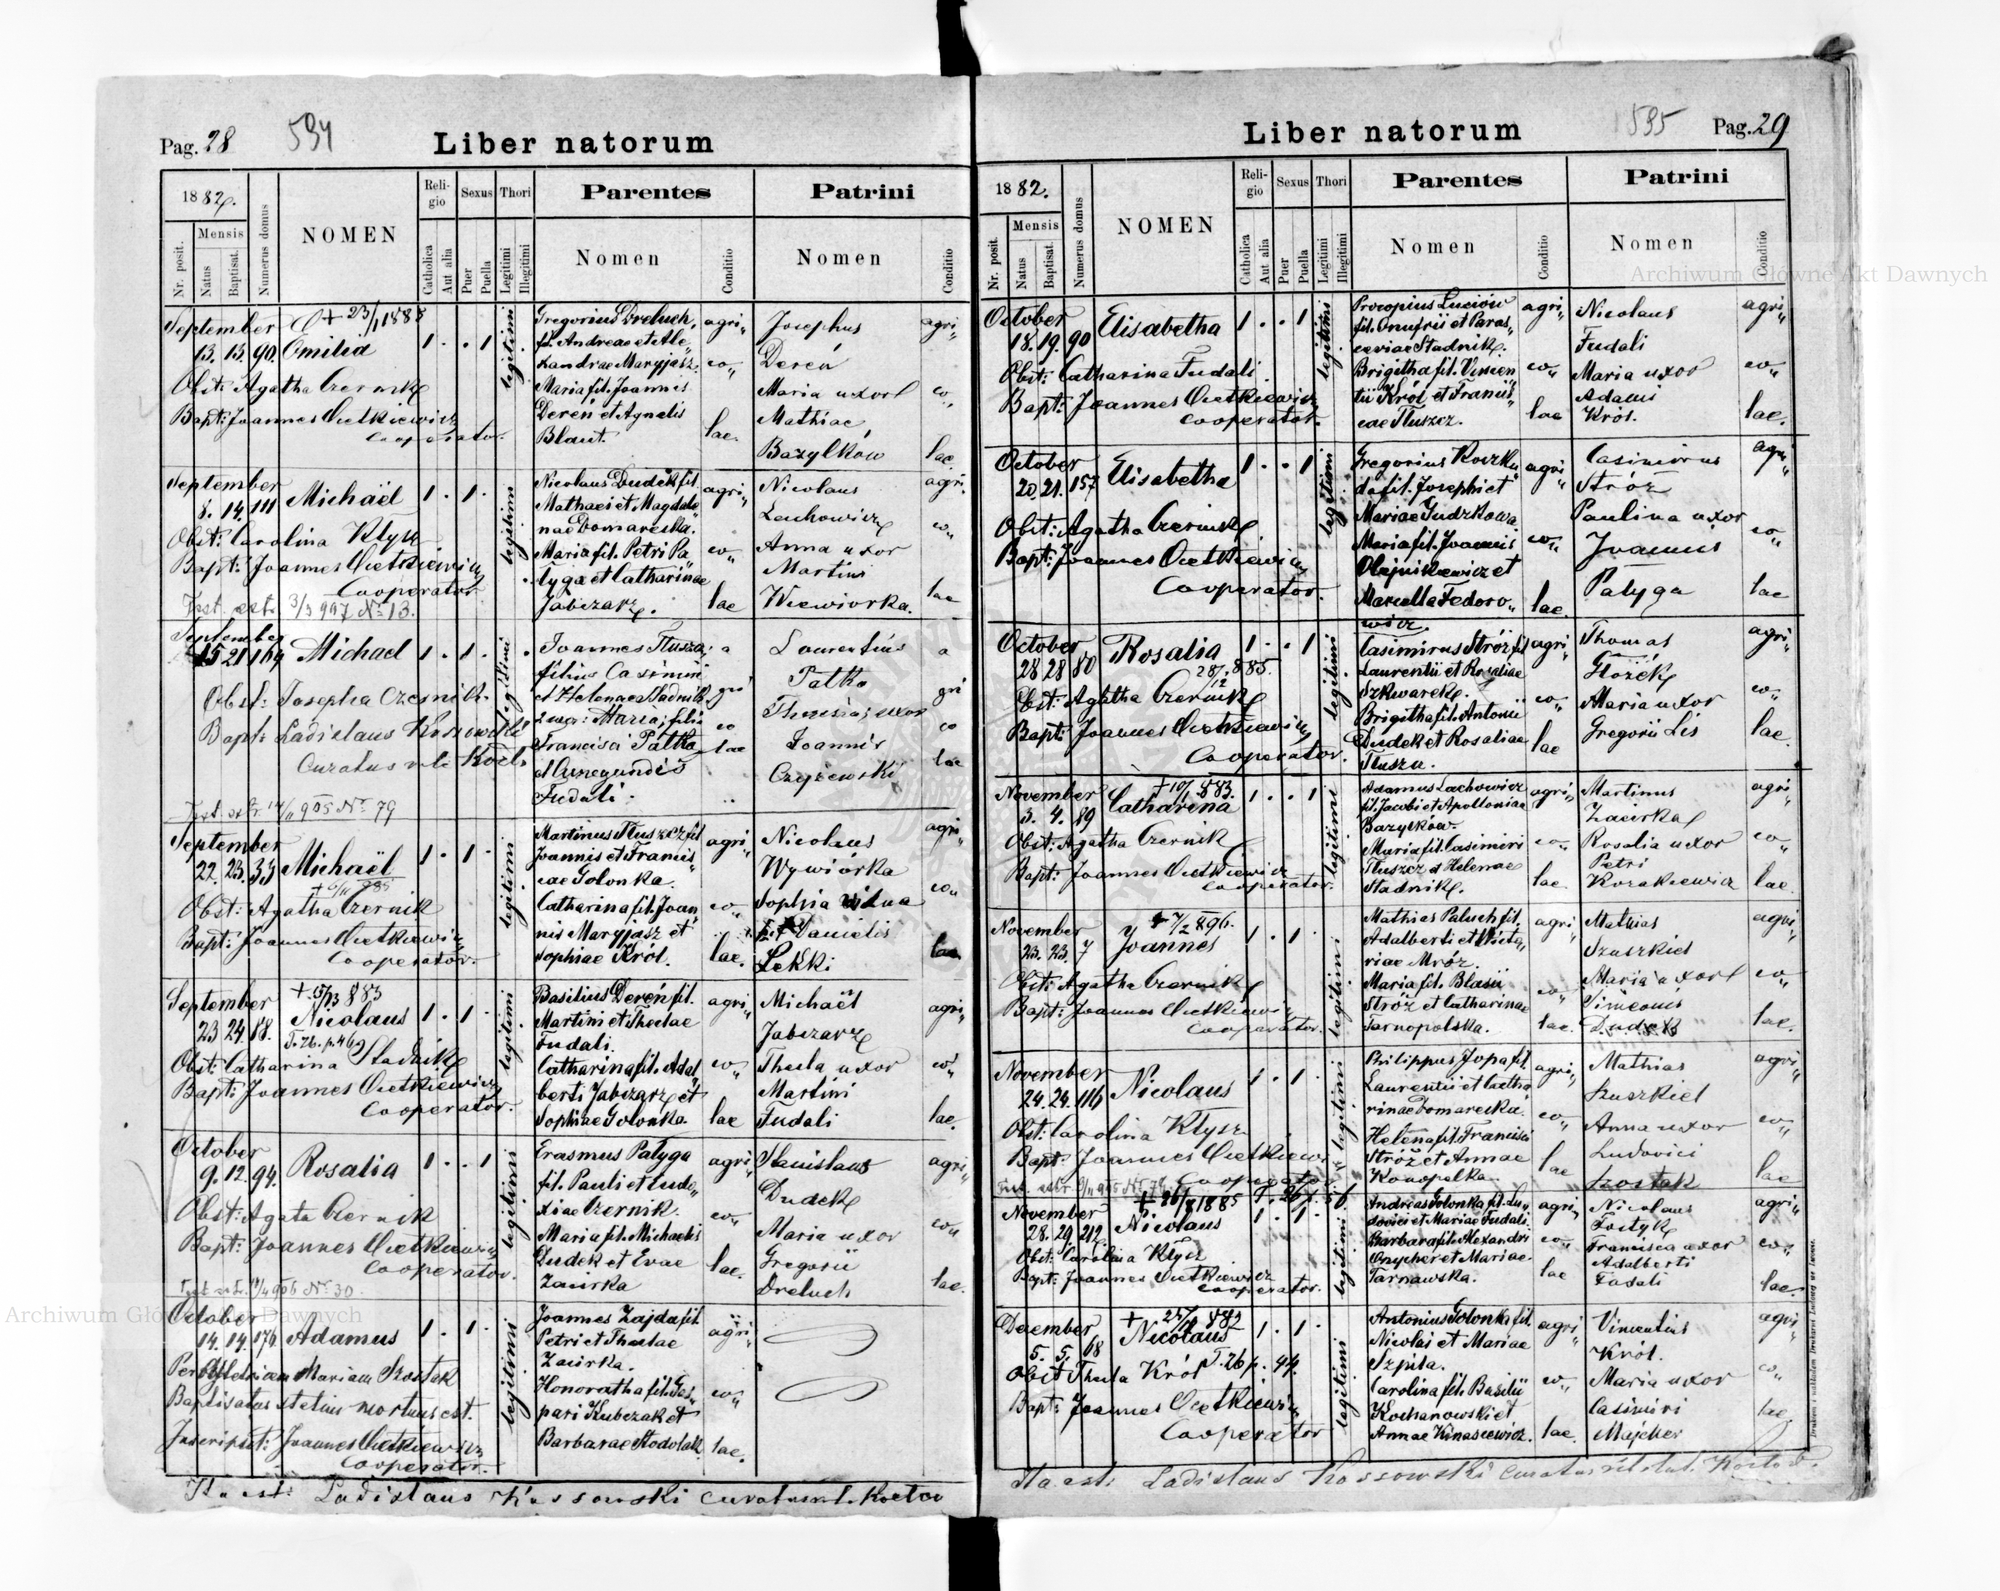 Pag. 28
594
Liber natorum
1882.
Nr. posit.
Mensis
Natus
Baptisat.
Numerus domus
NOMEN
Religio
Catholica
Aut alia
Sexus
Puer
Puella
Thori
Legitimi
Illegitimi
Parentes
Nomen
Conditio
Patrini
Nomen
Conditio
September
13. 13. 90. Emilia
Obst: Agatha Czernik
Bapt: Joannes Cietkiewicz
Cooperator.
1 . . 1
legitimi
Gregorius Dreluch,
fil. Andreae et Ale„
xandrae Maryjasz
Maria fil. Joannis
Dereń et Agnetis
Blaut.
agri„
co„
lae.
Josephus
Dereń
Maria uxor
Mathiae
Bazylków
agri„
co„
lae.
September
8. 14. 111 Michaël
Obst: Carolina Kłysz
Bapt: Joannes Cietkiewicz
Cooperator
3/3 907 No 13.
1 . 1 .
legitimi
Nicolaus Dudek fil.
Mathaei et Magdale
nae Domareska.
Maria fil. Petri Pa„
tyga et Catharinae
Jabczarz.
agri„
co„
lae
Nicolaus
Lachowicz
Anna uxor
Martini
Wiewiorka.
agri.
co„
lae
September
15 21 164 Michael
Obst: Josepha Czernik
Bapt: Ladislaus Kossowski
Curatus
905 No 79
1 . 1 .
legitimi
Joannes Tłuszcz
filius Casimiri
et Helenae Stadnik
uxor: Maria, filia
Francisci Patka
et Cunegundis
Fudali.
a
gri
co
lae
Laurentius
Patka
Theresia, uxor
Joannis
Czyżewski
a
gri
co
lae
September
22. 23. 33 Michaël
Obst: Agatha Czernik
Bapt: Joannes Cietkiewicz
Cooperator.
1 . 1 .
legitimi
Martinus Tłuszcz fil.
Joannis et Francis„
cae Golonka.
Catharina fil. Joan„
nis Maryjasz et
Sophiae Król.
agri„
co„
lae.
Nicolaus
Wywiórka
Sophia vidua
Danielis
Lekki
agri„
co„
lae.
September
23 24. 18. Nicolaus
T. 26. p. 46
Obst: Catharina Stadnik
Bapt: Joannes Cietkiewicz
Cooperator.
1 . 1 .
legitimi
Basilius Dereń fil.
Martini et Theclae
Fudali.
Catharina fil. Adal„
berti Jabczarz et
Sophiae Golonka.
agri„
co„
lae
Michaël
Jabczarz
Thecla uxor
Martini
Fudali
agri„
co„
lae.
October
9. 12. 94. Rosalia
Obst: Agata Czernik
Bapt: Joannes Cietkiewicz
Cooperator.
906 No 30.
1 . . 1
legitimi
Erasmus Patyga
fil. Pauli et Eudo„
xiae Czernik.
Maria fil. Michaelis
Dudek et Evae
Zaurka
agri„
co„
lae.
Stanislaus
Dudek
Maria uxor
Gregorii
Dreluch
agri„
co„
lae.
October
14. 14. 176 Adamus
Per Obstetricam Mariam Szostak
Baptisatus statim mortuus est.
Inscripsit: Joannes Cietkiewicz
Cooperator.
1 . 1 .
legitimi
Joannes Zajda fil.
Petri et Theclae
Zaurka.
Honoratha fil. Gas„
pari Kubczak et
Barbarae Stodolak
agri„
co„
lae.
Ita est: Ladislaus Kossowski curatus
Pag. 29
595
Liber natorum
1882.
Nr. posit.
Mensis
Natus
Baptisat.
Numerus domus
NOMEN
Religio
Catholica
Aut alia
Sexus
Puer
Puella
Thori
Legitimi
Illegitimi
Parentes
Nomen
Conditio
Patrini
Nomen
Conditio
October
18. 19. 90 Elisabetha
Obst: Catharina Fudali
Bapt: Joannes Cietkiewicz
Cooperator.
1 . . 1
legitimi
Procopius Luciów
fil. Onufrii et Paras„
ceviae Stadnik.
Brigitha fil. Vincen„
tii Król et Francis„
cae Tłuszcz.
agri„
co„
lae
Nicolaus
Fudali
Maria uxor
Adami
Król.
agri„
co„
lae.
October
20. 21. 157 Elisabetha
Obst: Agatha Czernik
Bapt: Joannes Cietkiewicz
Cooperator.
1 . . 1
legitimi
Gregorius Koszku„
da fil. Josephi et
Mariae Judzkowa.
Maria fil. Joannis
Olejnikiewicz et
Marcella Fedoro„
wicz.
agri„
co„
lae.
Casimirus
Stróż
Paulina uxor
Joannis
Patyga
agri„
co„
lae
October
28 28 80 Rosalia
Obst: Agatha Czernik
Bapt: Joannes Cietkiewicz
Cooperator.
1 . . 1
legitimi
Casimirus Stróż fil
Laurentii et Rosaliae
Szkwarek.
Brigitha fil. Antonii
Dudek et Rosaliae
Tłuszcz.
agri„
co„
lae
Thomas
Głożek
Maria uxor
Gregorii Lis
agri„
co„
lae.
November
3. 4. 89 Catharena
Obst: Agatha Czernik
Bapt: Joannes Cietkiewicz
Cooperator.
1 . . 1
legitimi
Adamus Lachowicz
fil. Jacobi et Apolloniae
Bazylków.
Maria fil. Casimiri
Tłuszcz et Helenae
Stadnik.
agri„
co„
lae.
Martinus
Zaurka
Rosalia uxor
Petri
Kozakiewicz
agri„
co„
lae.
November
23. 23. 7 Joannes
Obst: Agatha Czernik
Bapt: Joannes Cietkiewicz
Cooperator.
1 . 1 .
legitimi
Mathias Paluch fil.
Adalberti et Victo„
riae Mróz.
Maria fil. Blasii
Stróż et Catharinae
Tarnopolska.
agri„
co„
lae.
Mathias
Szuszkiel
Maria uxor
Simeonis
Dudek
agri„
co„
lae.
November
24. 24. 116 Nicolaus
Obst: Carolina Kłysz
Bapt: Joannes Cietkiewicz
Cooperator.
1 . 1 .
legitimi
Philippus Jopa fil.
Laurentii et Catha„
rinae Domareska.
Helena fil. Francisci
Stróż et Annae
Konopelka.
agri„
co„
lae
Mathias
Szuszkiel
Anna uxor
Ludovici
Szostak
agri„
co„
lae
November
28. 29. 212. Nicolaus
Obst: Carolina Kłysz
Bapt: Joannes Cietkiewicz
Cooperator.
1 . 1 .
legitimi
Andreas Golonka fil. Lu„
dovici et Mariae Fudali.
Barbara fil. Alexandri
Onyszkier et Mariae
Tarnawska.
agri„
co„
lae
Nicolaus
Fostyk
Francisca uxor
Adalberti
Fudali
agri„
co„
lae.
December
5. 5. 68 Nicolaus
T. 26 p. 44.
Obst: Thecla Król
Bapt: Joannes Cietkiewicz
Cooperator
1 . 1 .
legitimi
Antonius Golonka fil.
Nicolai et Mariae
Szpila.
Carolina fil. Basilii
Kochanowski et
Annae Kinasiewicz.
agri„
co„
lae.
Vincentius
Król.
Maria uxor
Casimiri
Majcher
agri„
co„
lae.
Ita est: Ladislaus Kossowski curatus
Archiwum Główne Akt Dawnych
Archiwum Główne Akt Dawnych